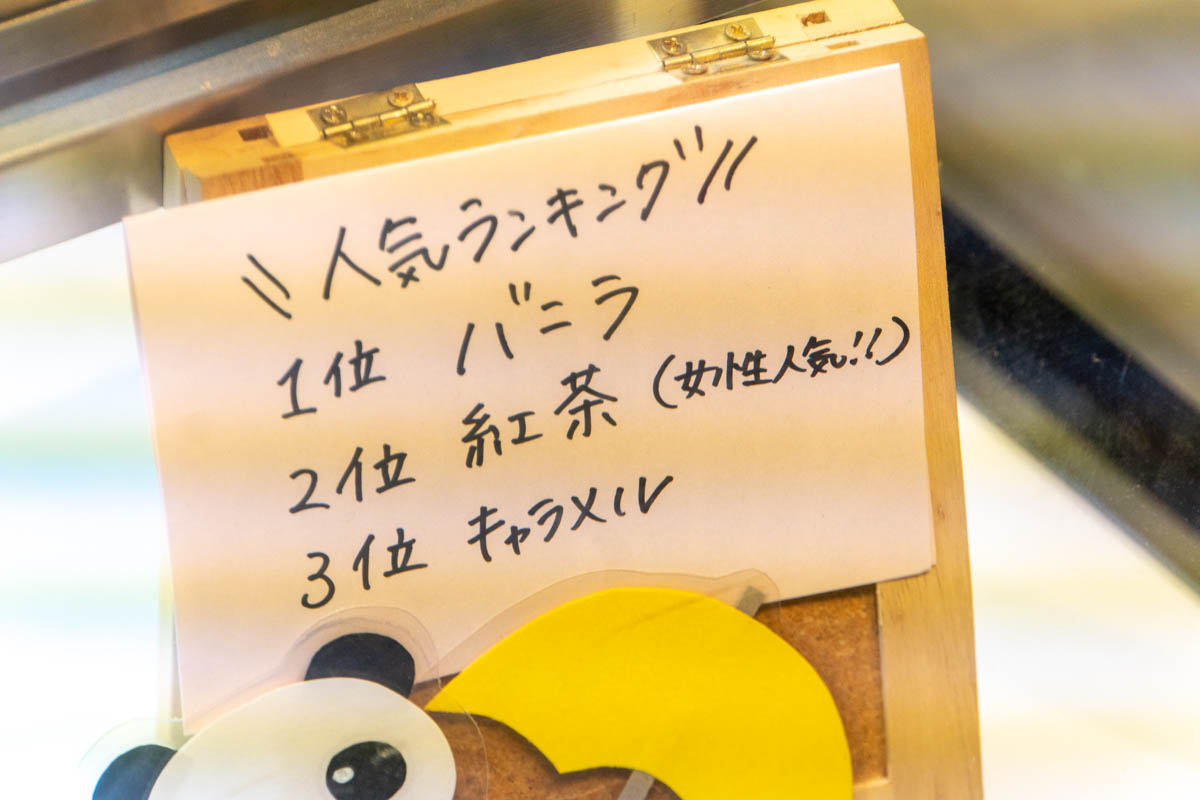 \\人気ランキング//
1位 バニラ
2位 紅茶 (女性人気!!)
3位 キャラメル